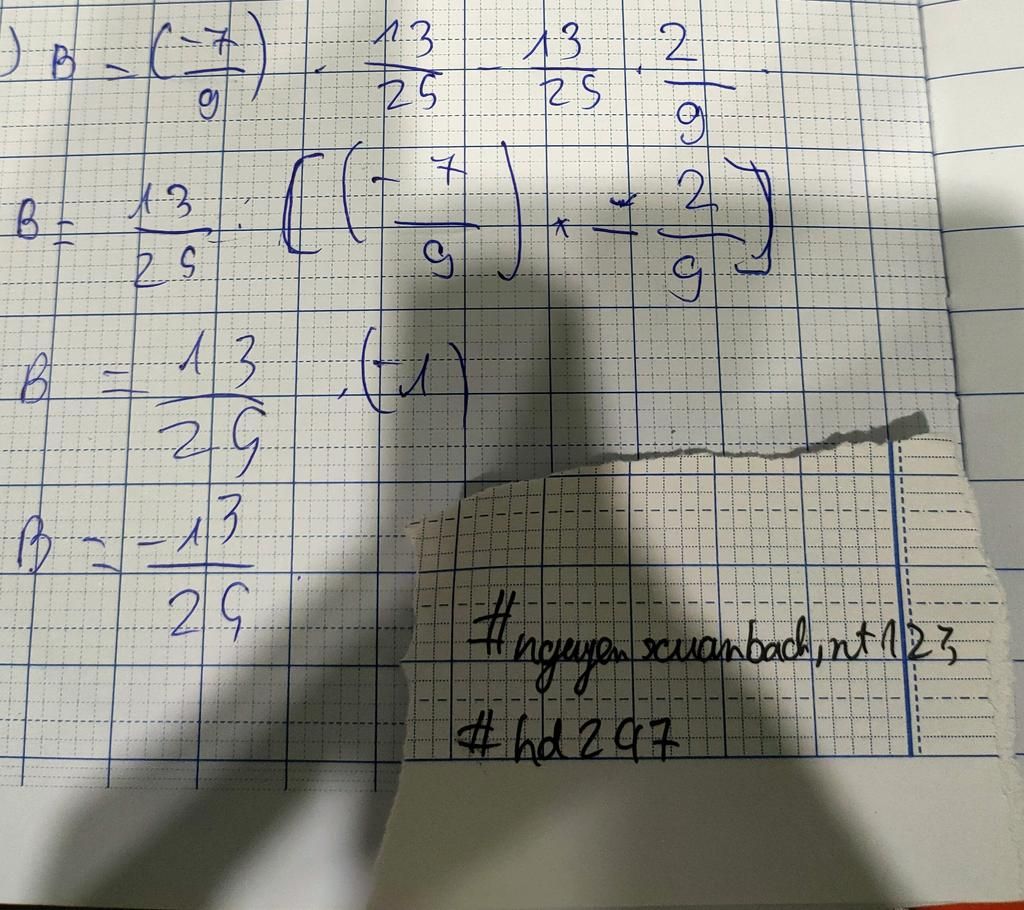 ) B = (-7/9) . 13/25 - 13/25 . 2/9
B = 13/25 . [(-7/9) - 2/9]
B = 13/25 . (-1)
B = -13/25
#nguyenxuanbach,nt123
#hd297